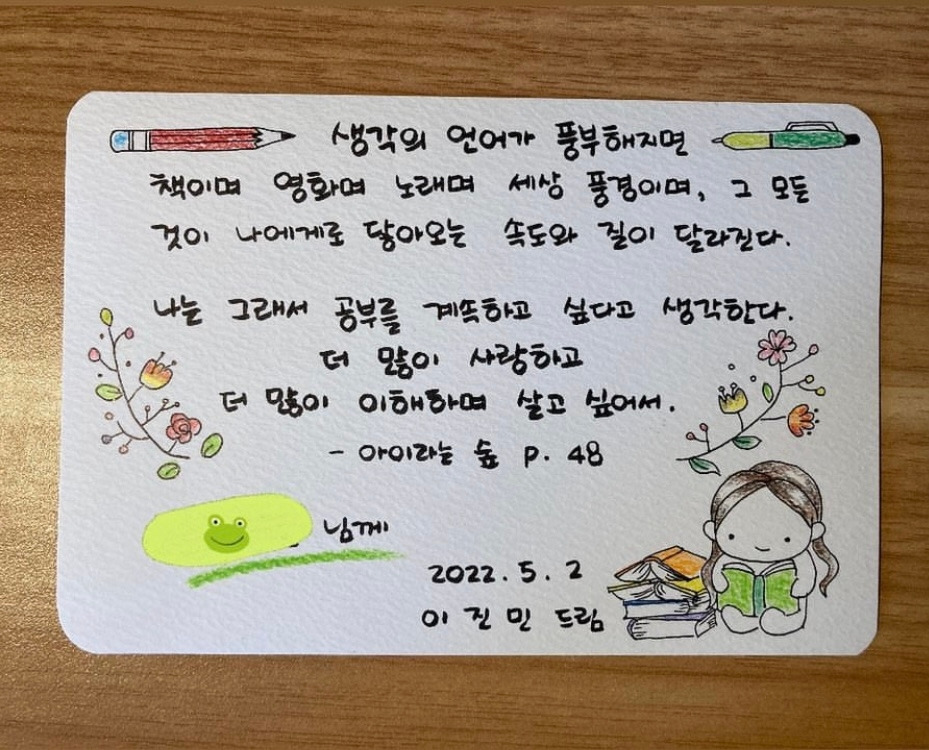 생각의 언어가 풍부해지면
책이며 영화며 노래며 세상 풍경이며, 그 모든
것이 나에게로 닿아오는 속도와 질이 달라진다.
나는 그래서 공부를 계속하고 싶다고 생각한다.
더 많이 사랑하고
더 많이 이해하며 살고 싶어서.
- 아이라는 숲 P. 48
님께
2022. 5. 2
이 진 민 드림